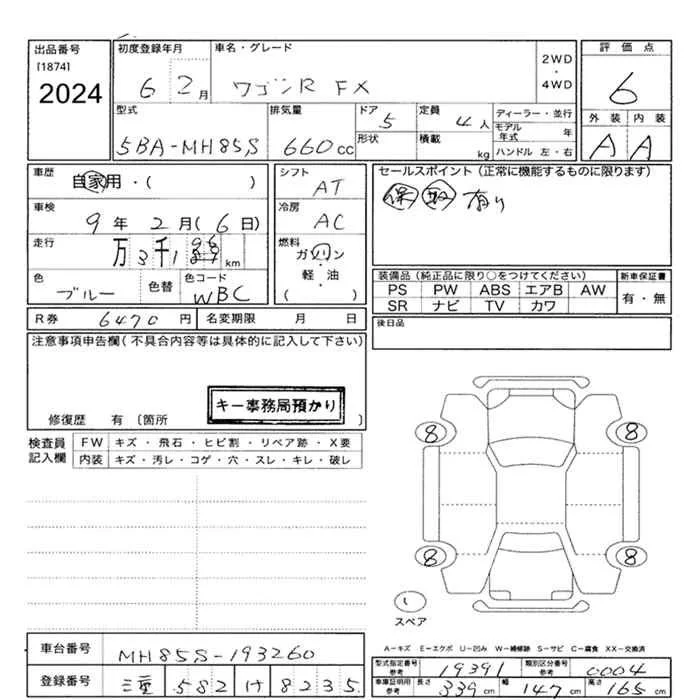 出品番号
[1874]
2024
初度登録年月
6 2月
車名・グレード
ワゴンR FX
2WD
・
4WD
評価点
6
外装 内装
A A
型式
5BA-MH85S
排気量
660cc
ドア
5
形状
定員
4人
積載
kg
ディーラー・並行
モデル年式 年
ハンドル 左・右
車歴
自家用・( )
車検
9年2月(6日)
走行
万3千1 km
色
ブルー
色替
色コード
WBC
シフト
AT
冷房
AC
燃料
ガソリン
・
軽・油
( )
セールスポイント (正常に機能するものに限ります)
保 取 有り
装備品 (純正品に限り○をつけてください)
PS PW ABS エアB AW
SR ナビ TV カワ
新車保証書
有・無
後日品
R券 6470円
名変期限 月 日
注意事項申告欄(不具合内容等は具体的に記入して下さい)
キー事務局預かり
修復歴 有 〔箇所 〕
検査員
記入欄
FW キズ・飛石・ヒビ割・リペア跡・X要
内装 キズ・汚レ・コゲ・穴・スレ・キレ・破レ
8 8
8 8
スペア
A-キズ E-エクボ U-凹み W-補修跡 S-サビ C-腐食 XX-交換済
車台番号
MH85S-193260
登録番号
三重 582 け 8235
型式指定番号
参考
19391
類別区分番号
参考
0004
車庫証明用
参考
長さ 339cm
幅 147cm
高さ 165cm